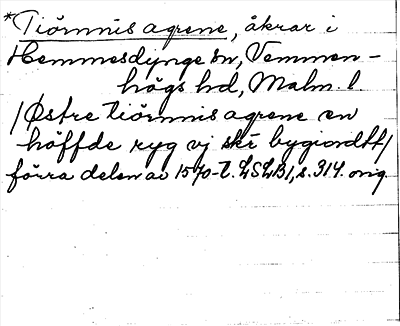 *Tiörnnis agrene, åkrar i
Hemmesdynge sn, Vemmen-
högs hd, Malm. l.
/Östre tiörnnis agrene en
höffde ryg vj skr bygiordtt/
förra delen av 1570-t. LSLB1, s. 314. orig